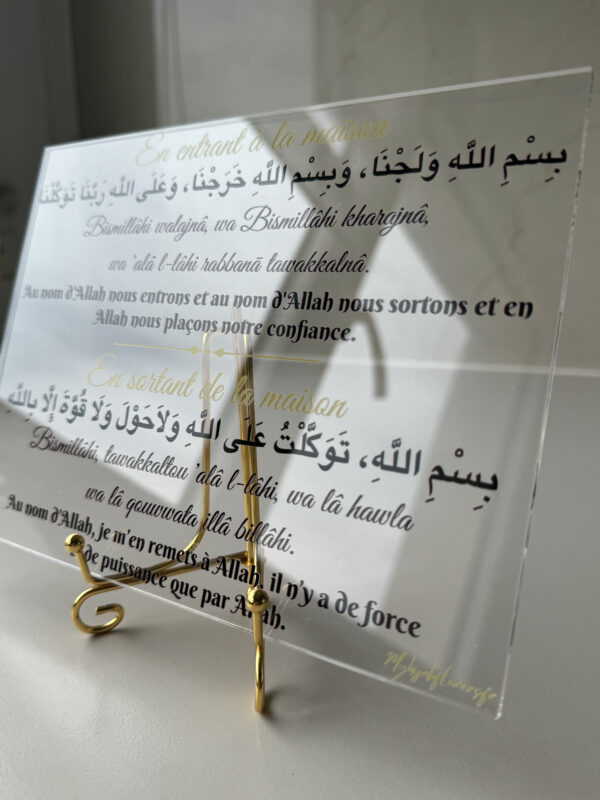 En entrant à la maison
بِسْمِ اللَّهِ وَلَجْنَا، وَبِسْمِ اللَّهِ خَرَجْنَا، وَعَلَى اللَّهِ رَبِّنَا تَوَكَّلْنَا
Bismillâhi walajnâ, wa Bismillâhi kharajnâ,
wa 'alâ l-lâhi rabbanâ tawakkalnâ.
Au nom d'Allah nous entrons et au nom d'Allah nous sortons et en
Allah nous plaçons notre confiance.
En sortant de la maison
بِسْمِ اللَّهِ، تَوَكَّلْتُ عَلَى اللَّهِ وَلاَحَوْلَ وَلَا قُوَّةَ إِلَّا بِاللَّهِ
Bismillâhi, tawakkaltou 'alâ l-lâhi, wa lâ hawla
wa lâ qouwwata illâ billâhi.
Au nom d'Allah, je m'en remets à Allah, il n'y a de force
de puissance que par Allah.